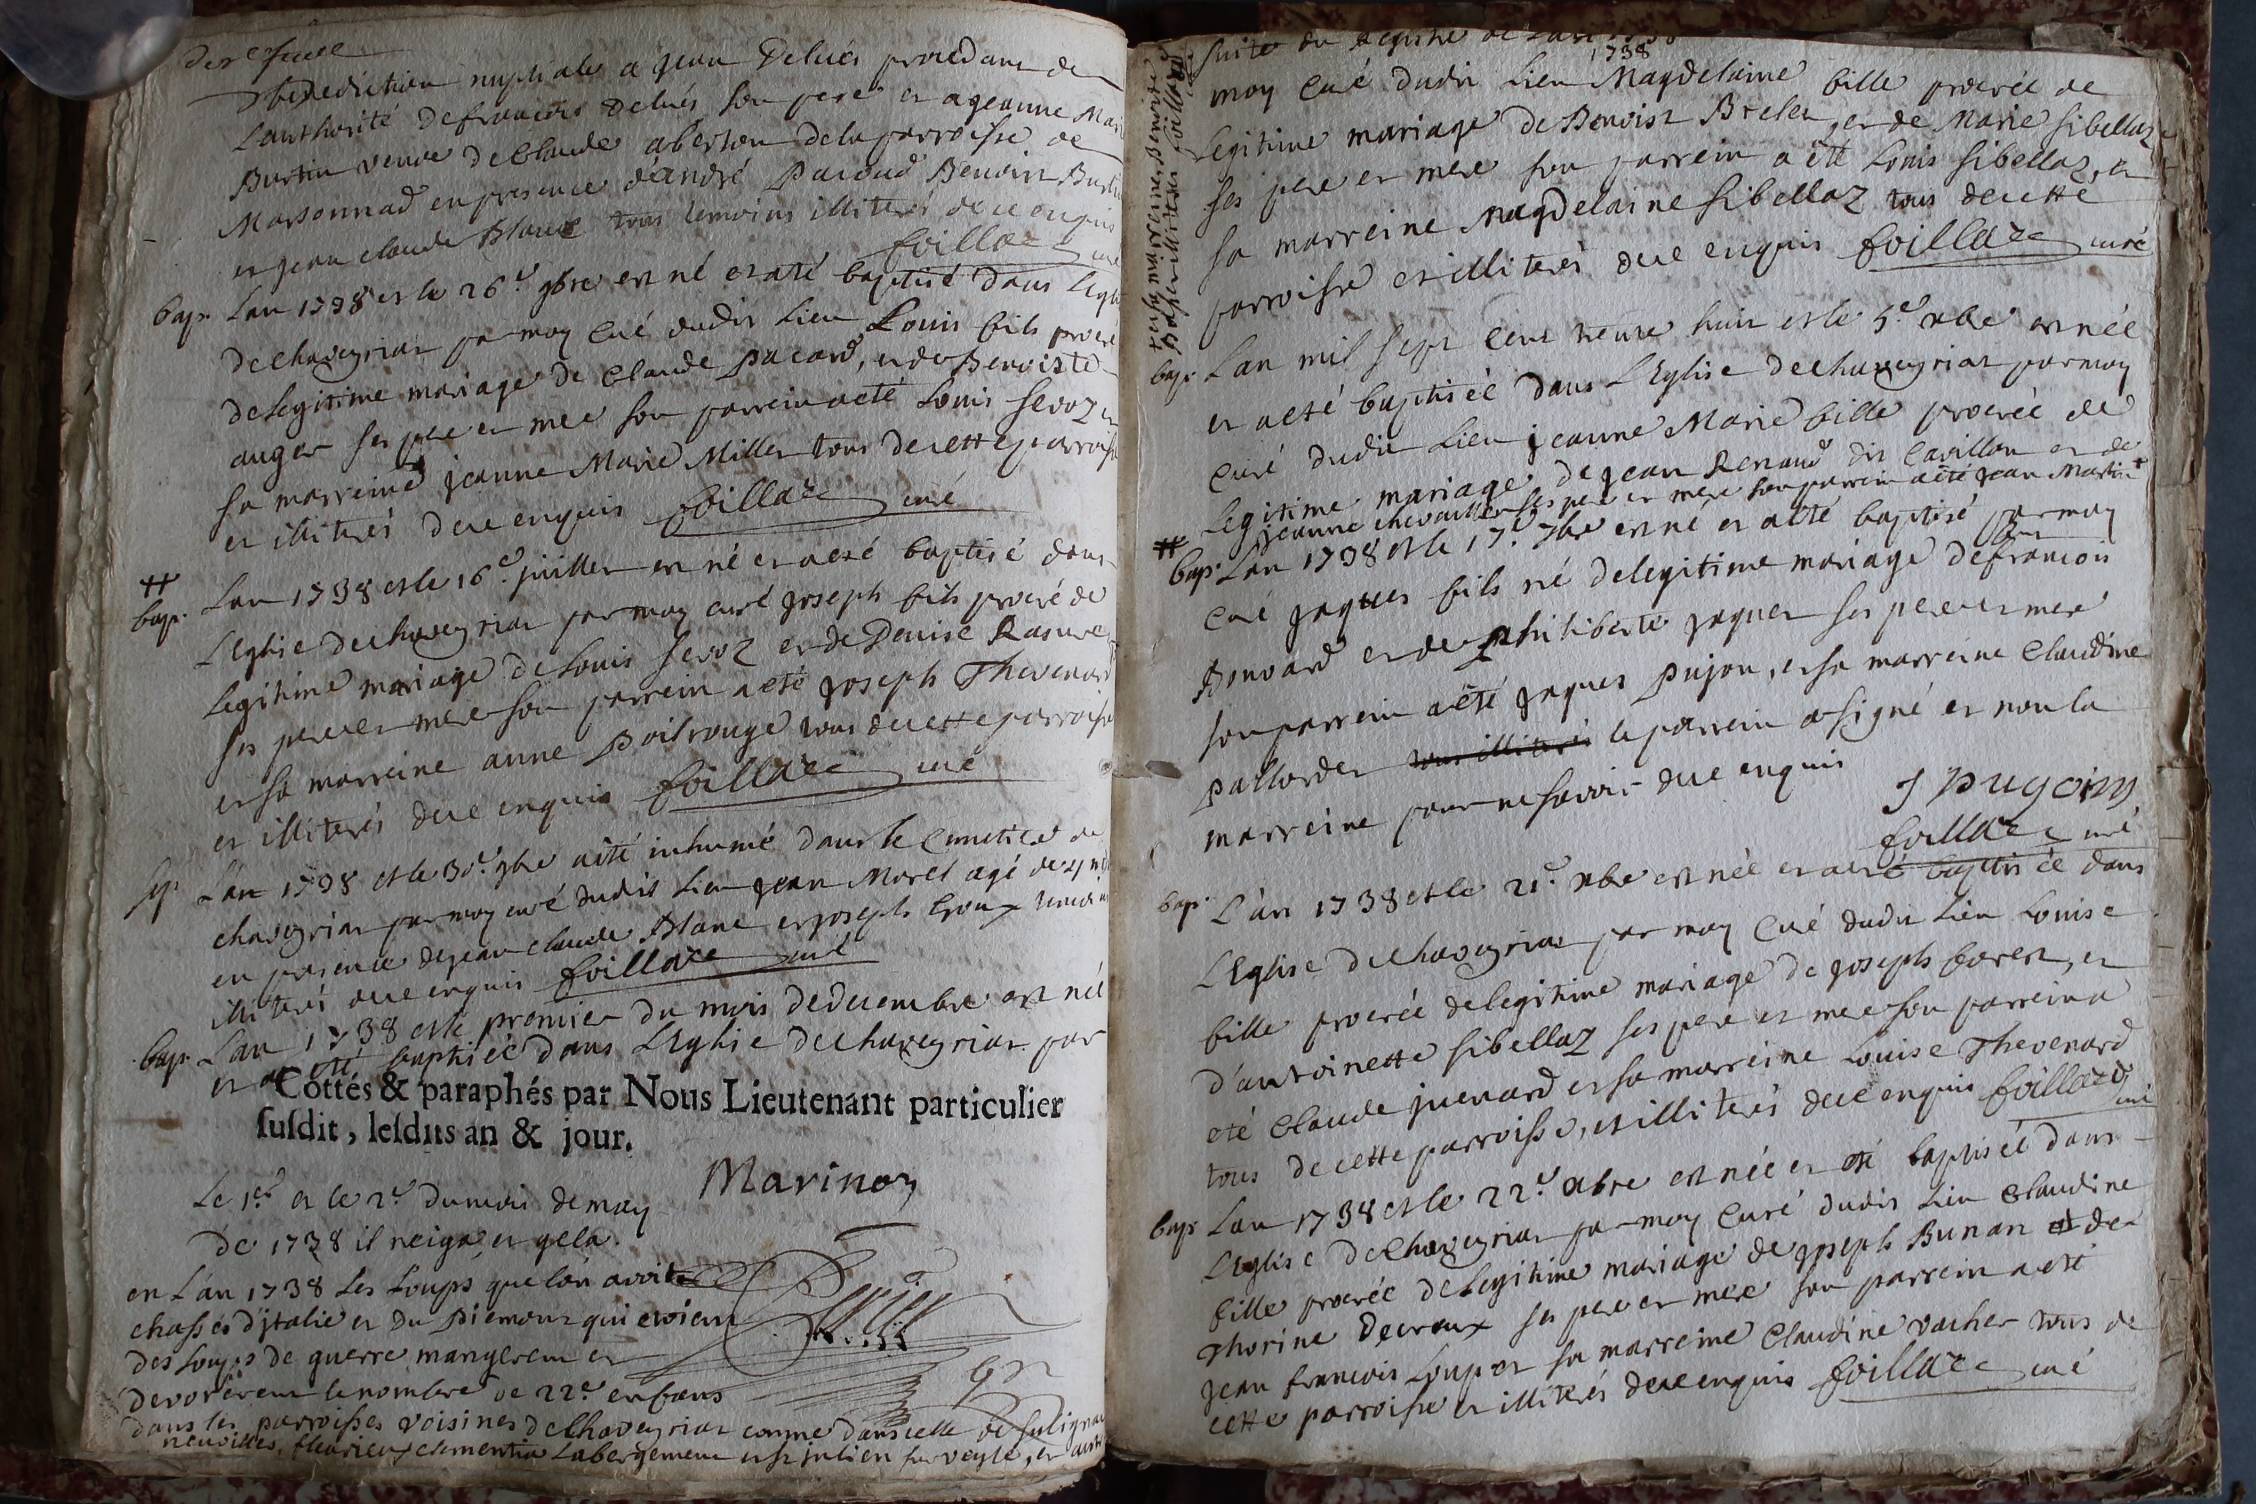 benediction nuptiale a jean Delués procedant de
Lauthorité defrancois delués son pere et a jeanne Mar
Burtin veuve de Claude aberton dela parroisse de
Marsonnad en presence d'andré Paroud Benoist Burtin
et jean claude Blanc tous temoins illiterés de ce enquis
foillaze curé
bap. Lan 1738 et le 26.e 9bre est né et a eté baptisé dans L'eglise
de chaveyriat par moy Curé dudit Lieu Louis fils procréé
de legitime mariage de Claude pacard, et de Benoiste
auger ses pere et mere son parrein a eté Louis sevoz et
sa marreine jeanne Marie Millet tous de cette parroisse
et illiterés de ce enquis foillaze curé
#
bap. Lan 1738 et le 16.e juillet est né et a eté baptisé dans
L'Eglise de chaveyriat par moy curé joseph fils procréé de
legitime mariage de Louis sevoz et de Denise Rasurel
ses pere et mere son parrein a eté joseph Thevenard
et sa marreine anne Poilrouge tous de cette parroisse
et illiterés de ce enquis foillaze curé
sep. L'an 1738 et le 30.e 9bre a eté inhumé dans le Cimetiere de
chaveyriat par moy curé dudit Lieu jean Morel agé de 4
en presence de jean claude Blanc et joseph Goux temoins
illiterés de ce enquis foillaze curé
bap. Lan 1738 et le premier du mois de decembre est née
et a eté baptisée dans L'Eglise de chaveyriat par
Cottés & paraphés par Nous Lieutenant particulier
susdit, lesdits an & jour.
Marinon
Le 1.er et le 2.e du mois de may
de 1738 il neiga et gela.
en L'an 1738 Les Loups que l'on avoit
chassés d'jtalie et du Piemont qui etoient
des Loups de guerre mangerent et
devorerent le nombre de 22.e enfans
dans les parroisses voisines de Chaveyriat comme dans celle de sulignat
neuvilles, fleurieux clementia Labergement et st julien sur veyle, et
suite du Registre de Lan 1738
1738
moy Curé dudit Lieu Magdelaine fille procréée de
legitime mariage de Benoist Brelet, et de Marie sibellaz
ses pere et mere son parrein a eté Louis sibellaz, et
sa marreine Magdelaine sibellaz tous de cette
parroisse et illiterés de ce enquis foillaze curé
bap. Lan mil sept cent trente huit et le 5.e xbre est née
et a eté baptisée dans L'Eglise de chaveyriat par moy
Curé dudit Lieu jeanne Marie fille procréée de
Legitime mariage de jean Renaud dit Cavillon et de
jeanne chevaillier ses pere et mere son parrein a eté jean Martin
#
bap. Lan 1738 et le 17.e 7bre est né et a eté baptisé par moy
Curé jaques fils né de legitime mariage de francois
Bonvard et de philiberte jaquet ses pere et mere
son parrein a eté jaques pujon, et sa marreine Claudine
pallordet tous illiterés le parrein a signé et non la
marreine pour ne savoir de ce enquis
J pugoin
foillaze curé
bap. L'an 1738 et le 21.e xbre est née et a eté baptisée dans
L'Eglise de chaveyriat par moy Curé dudit Lieu Louise
fille procréée de legitime mariage de joseph forest, et
d'antoinette sibellaz ses pere et mere son parrein a
eté Claude juenard et sa marreine Louise Thevenard
tous de cette parroisse, et illiterés de ce enquis foillaze curé
bap. Lan 1738 et le 22.e xbre est née et eté baptisée dans
L'Eglise de Chaveyriat par moy Curé dudit Lieu Claudine
fille procréée de legitime mariage de joseph Bunan et de
Thorine Decroux ses pere et mere son parrein a eté
jean francois Loup et sa marreine Claudine vacher tous de
cette parroisse et illiterés de ce enquis foillaze curé